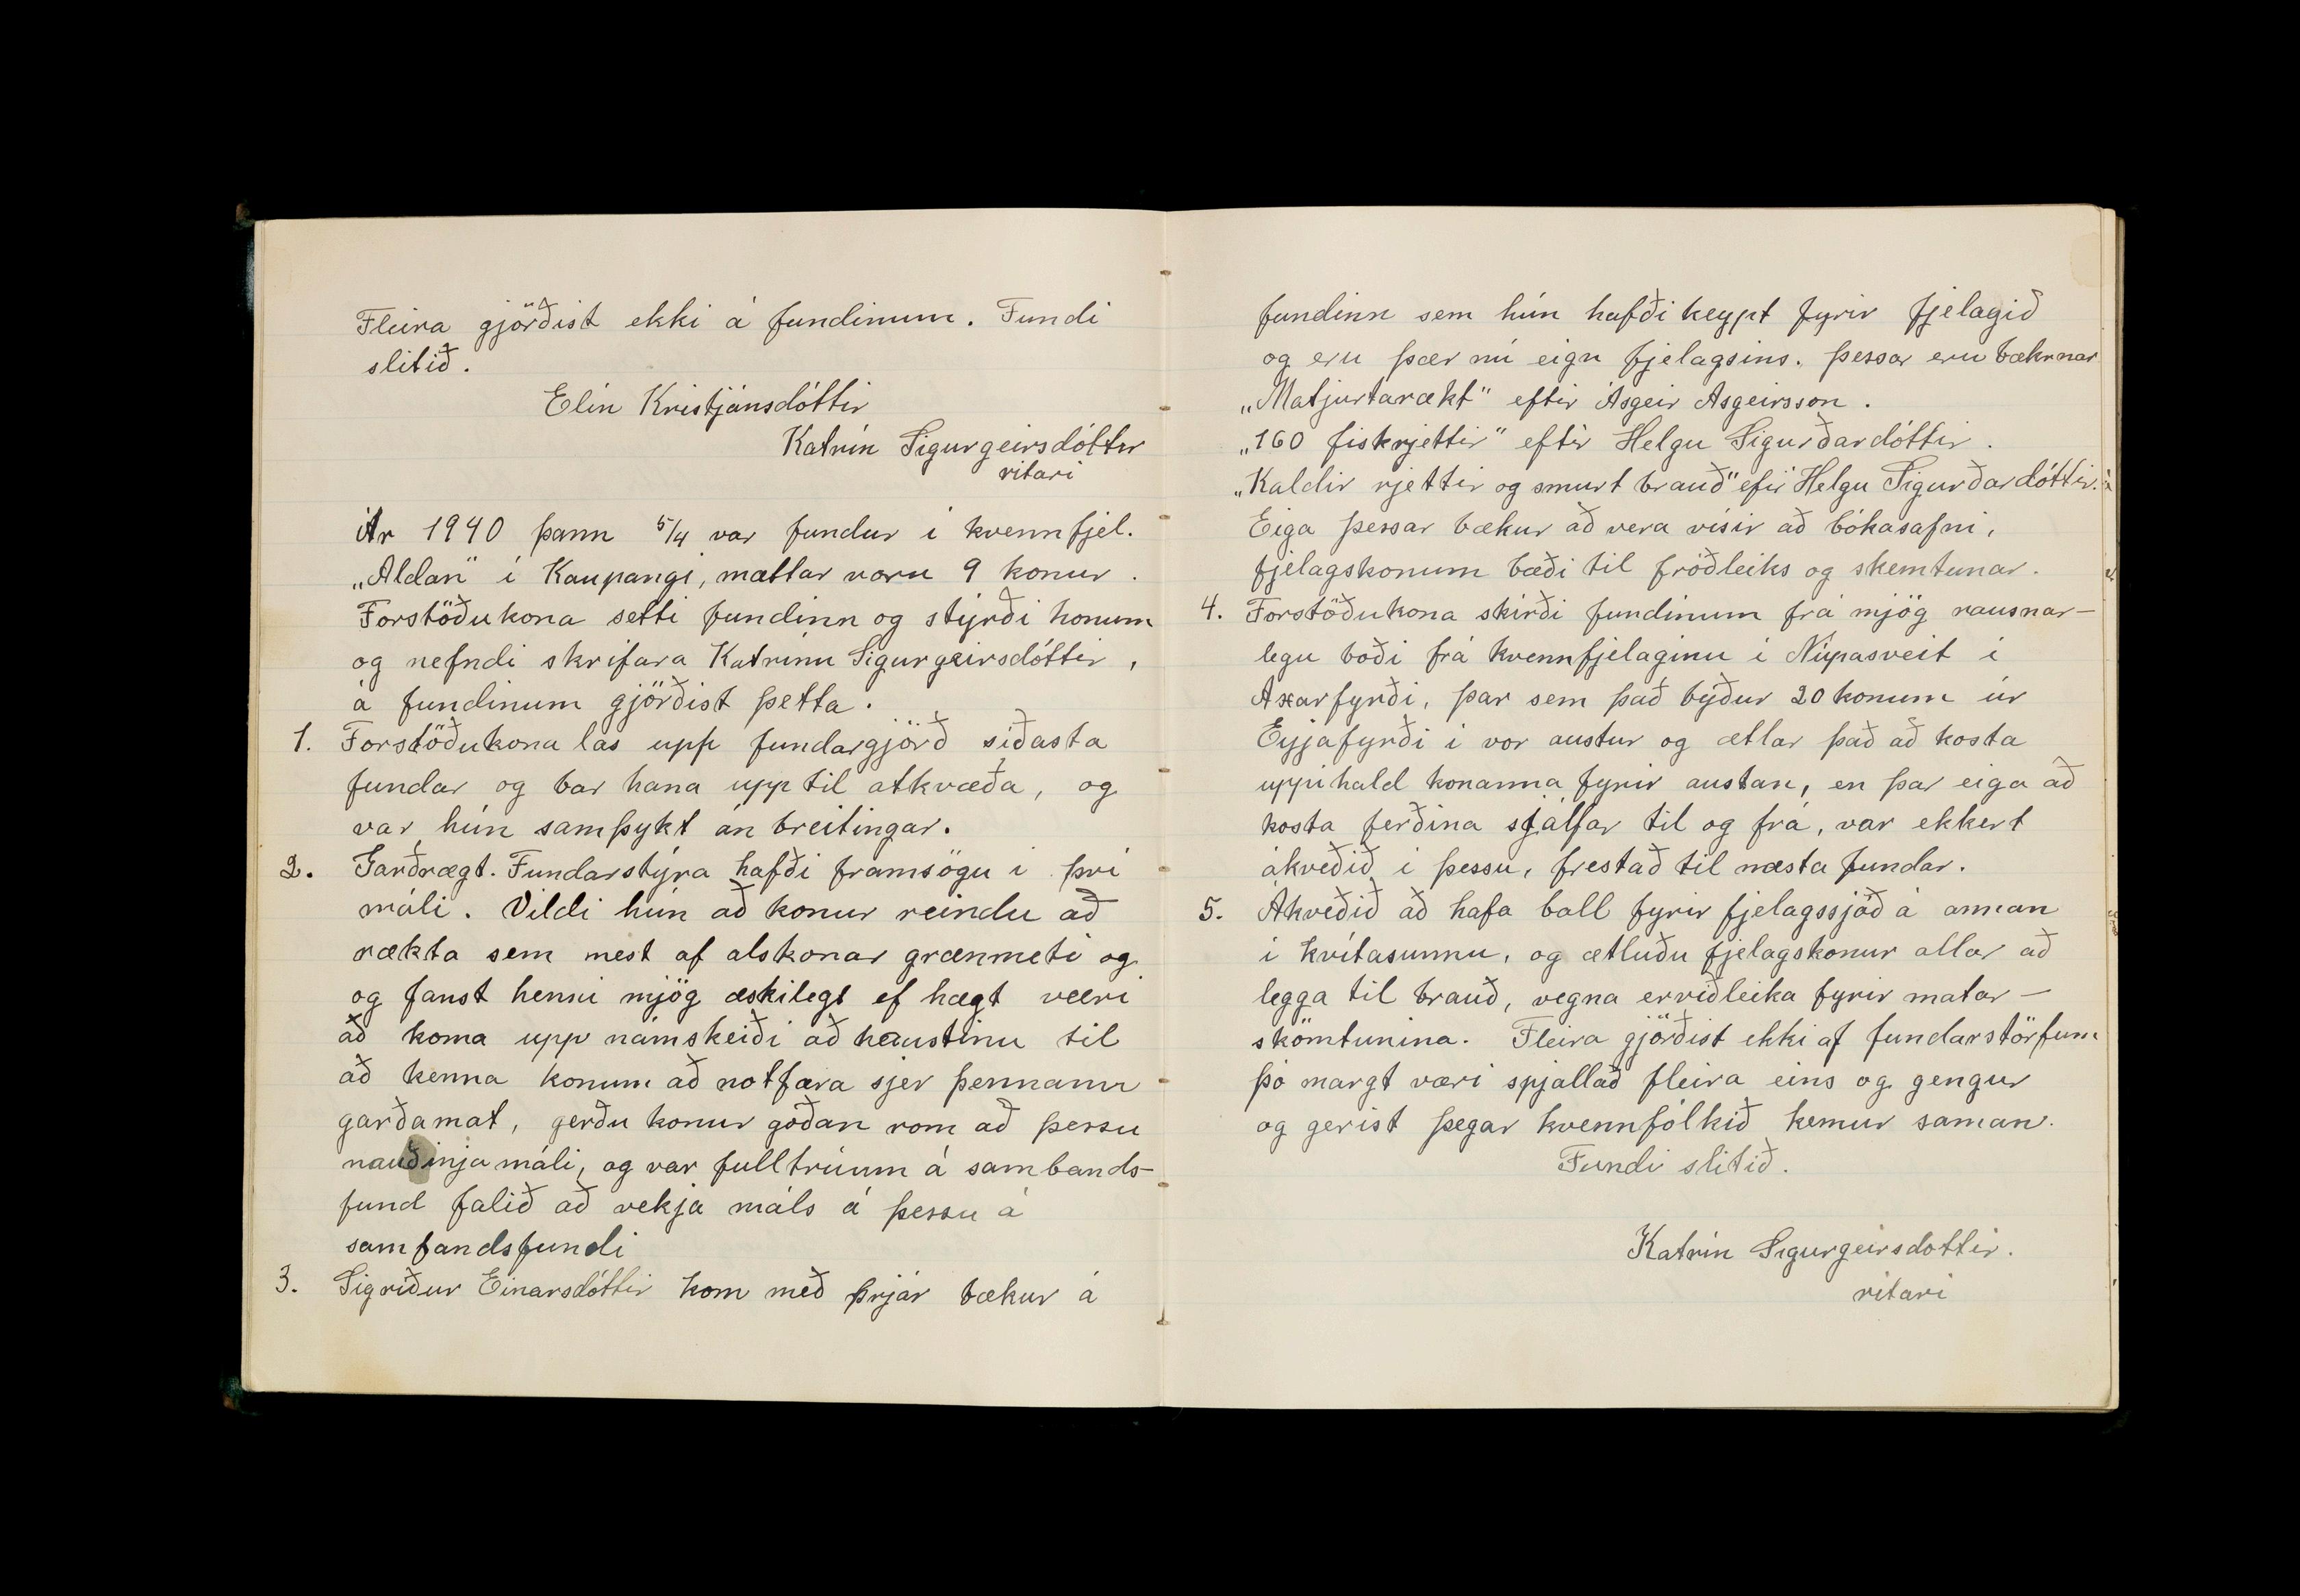 Fleira gjörðist ekki á fundinum. Fundi
slitið.
Elín Kristjánsdóttir
Katrín Sigurgeirsdóttir
ritari
Ár 1940 þann 5/4 var fundur í kvennfjel.
„Aldan" í Kaupangi, mættar voru 9 konur.
Forstöðukona setti fundinn og stýrði honum
og nefndi skrifara Katrínu Sigurgeirsdóttir,
á fundinum gjörðist þetta.
1. Forstöðukona las upp fundargjörð síðasta
fundar og bar hana upp til atkvæða, og
var hún samþykt án breitingar.
2. Garðrægt. Fundarstýra hafði framsögu í því
máli. Vildi hún að konur reindu að
rækta sem mest af alskonar grænmeti og
og fanst henni mjög æskilegt ef hægt væri
að koma upp námskeiði að haustinu til
að kenna konum að notfæra sjer þennann
garðamat, gerðu konur góðan rom að þessu
nauðinja máli, og var fulltrúum á sambands-
fund falið að vekja máls á þessu á
samfandsfundi
3. Sigríður Einarsdóttir kom með þrjár bækur á
fundinn sem hún hafði keypt fyrir fjelagið
og eru þær nú eign fjelagsins. Þessar eru bækurnar
„Matjurtarækt" eftir Ásgeir Ásgeirsson.
„160 fiskrjettir" eftir Helgu Sigurðardóttir.
„Kaldir rjettir og smurt brauð" efir Helgu Sigurðardóttir.
Eiga þessar bækur að vera vísir að bókasafni,
fjelagskonum bæði til fróðleiks og skemtunar.
4. Forstöðukona skírði fundinum frá mjög rausnar-
legu boði frá kvennfjelaginu í Núpasveit í
Axarfyrði, þar sem það býður 20 konum úr
Eyjafyrði í vor austur og ætlar það að kosta
uppihald konanna fyrir austan, en þar eiga að
kosta ferðina sjálfar til og frá, var ekkert
ákveðið í þessu, frestað til næsta fundar.
5. Ákveðið að hafa ball fyrir fjelagssjóð á annan
í hvítasunnu, og ætluðu fjelagskonur allar að
legga til brauð, vegna erviðleika fyrir matar-
skömtunina. Fleira gjörðist ekki af fundarstörfum
þó margt væri spjallað fleira eins og gengur
og gerist þegar kvennfólkið kemur saman.
Fundi slitið.
Katrín Sigurgeirsdottir.
ritari